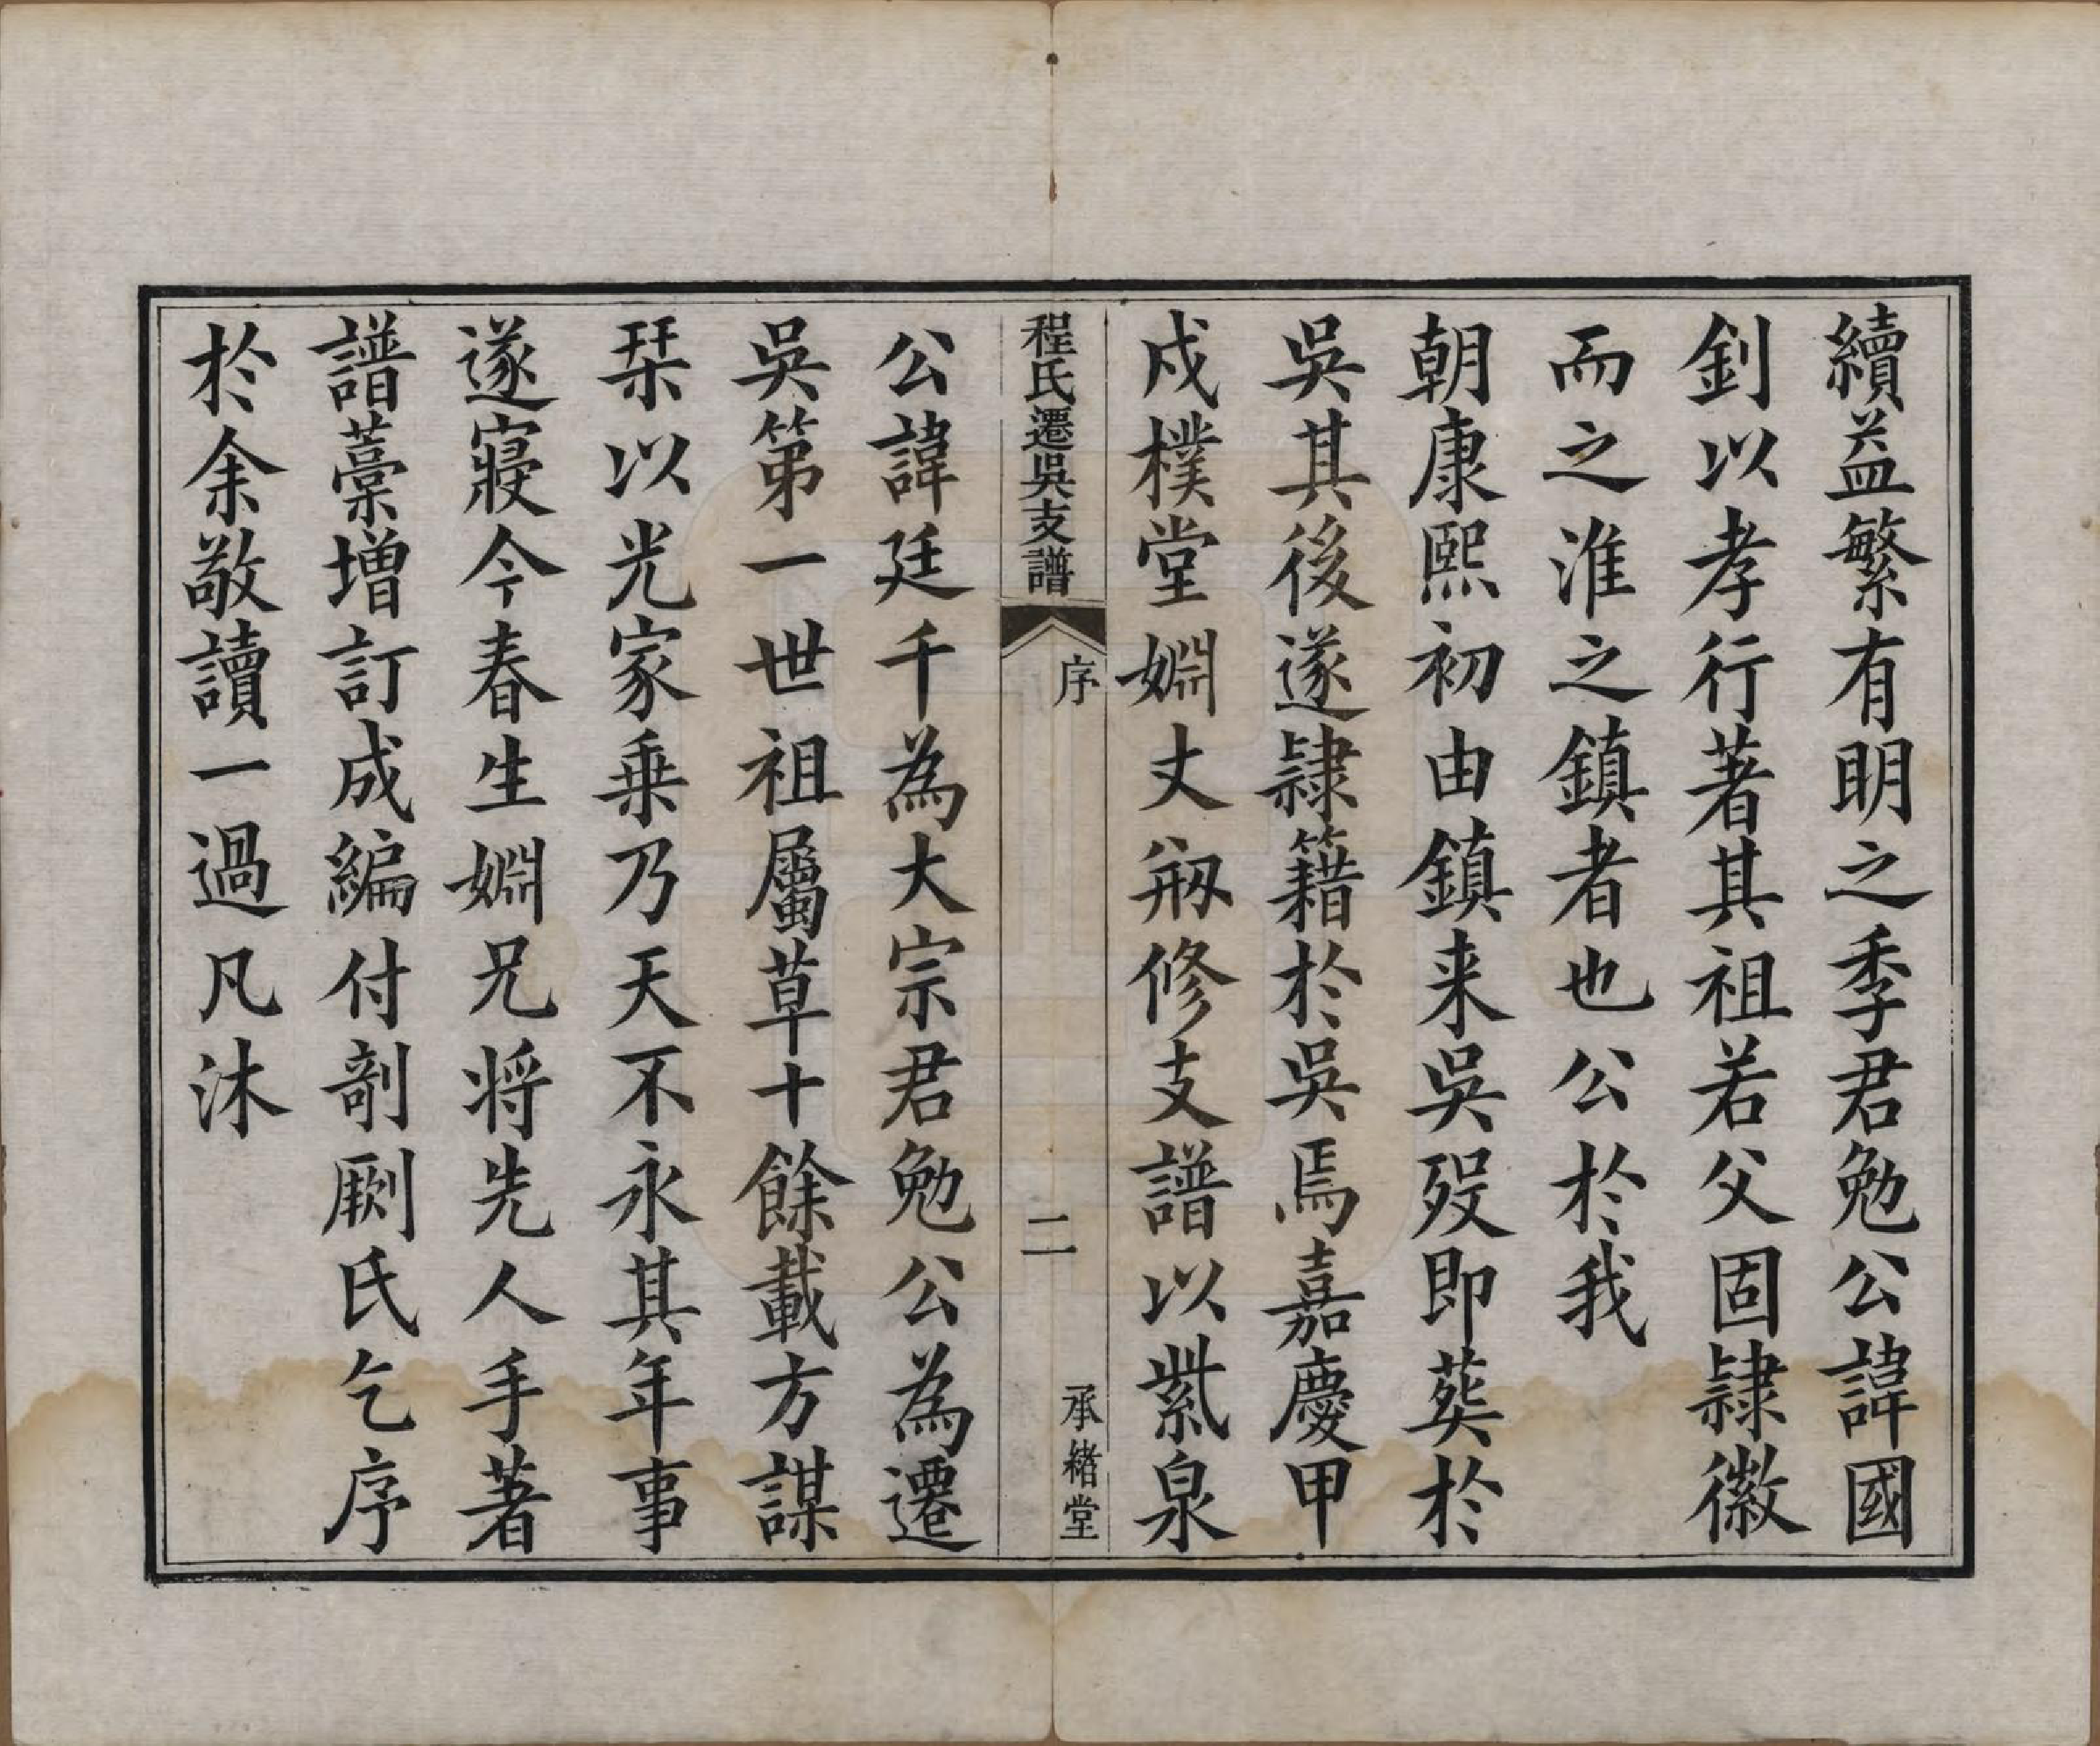 續益繁有明之季君勉公諱國
釗以孝行著其祖若父固隷徽
而之淮之鎮者也公於我
朝康熙初由鎮来吳歿即葬於
吳其後遂隷籍於吳焉嘉慶甲
戍樸堂婣丈剏修支譜以紫泉
程氏遷吳支譜
序
二
承緒堂
公諱廷千為大宗君勉公為遷
吳第一世祖屬草十餘載方謀
栞以光家乗乃天不永其年事
遂寢今春生婣兄将先人手著
譜藁增訂成編付剞劂氏乞序
於余敬讀一過凡沐